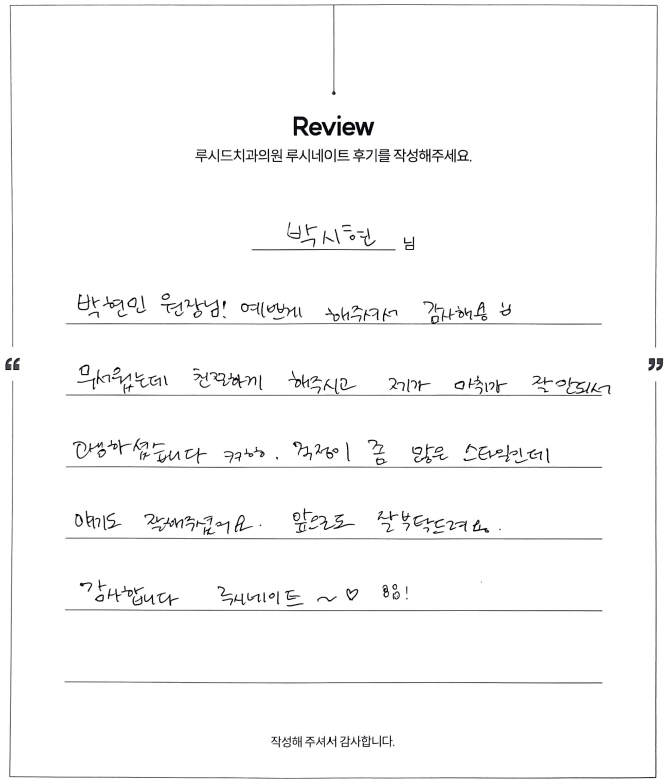 Review
루시드치과의원 루시네이트 후기를 작성해주세요.
박시현 님
박현민 원장님! 예쁘게 해주셔서 감사해용 ㅂ
“ ”
무서웠는데 친절하게 해주시고 제가 마취가 잘 안되서
고생하셨습니다 ㅋㅋㅎㅎ. 걱정이 좀 많은 스타일인데
얘기도 잘해주셨어요. 앞으로도 잘부탁드려요.
감사합니다 루시네이트 ~ ♡ !
작성해 주셔서 감사합니다.